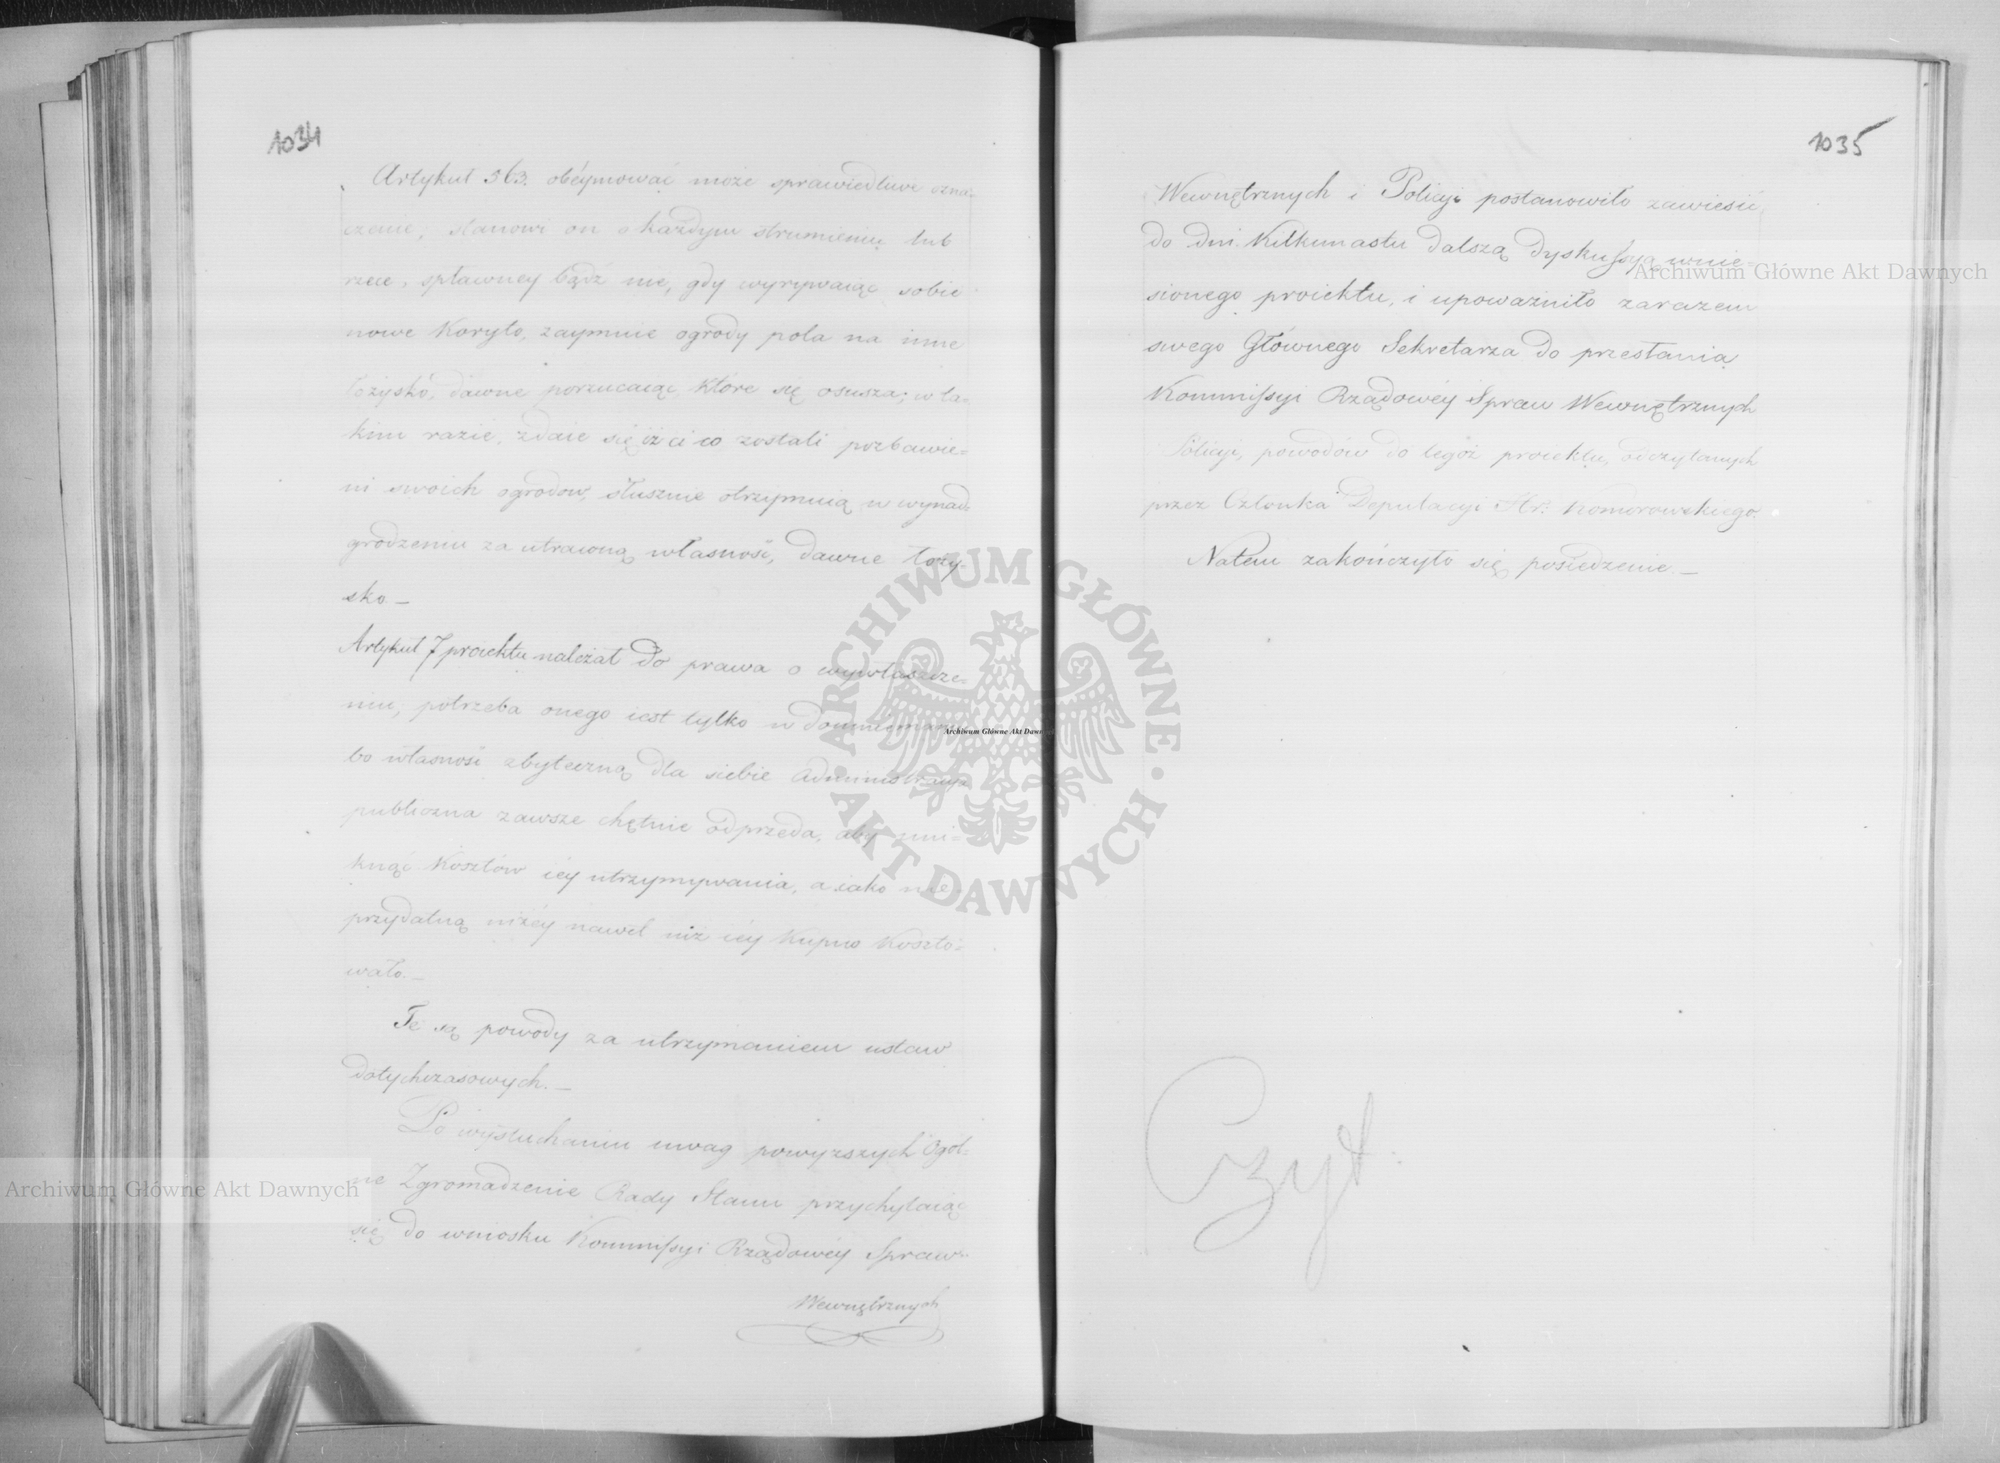 1034
Artykuł 563. obéymować może sprawiedliwe ozna=
czenie; stanowi on o każdym strumieniu lub
rzece, spławney bądź nie, gdy wyrywaiąc sobie
nowe koryto, zaymuie ogrody pola na inne
łożysko, dawne porzucaiąc, które się osusza; w ta=
kim razie, zdaie się iż ci co zostali pozbawie=
ni swoich ogrodow, słusznie otrzymuią w wynad=
grodzeniu za utraconą własność, dawne łoży=
sko. —
Artykuł 7 proiektu należał do prawa o wywłaszcze=
niu, potrzeba onego iest tylko w domniemaniu
bo własność zbyteczną dla siebie Administracya
publiczna zawsze chętnie odprzeda, aby uni=
knąć kosztów iéy utrzymywania, a iako nie=
przydatną niżéy nawet niż iéy kupno koszto=
wało. —
Te są powody za utrzymaniem ustaw
dotychczasowych. —
Po wysłuchaniu uwag powyższych Ogol=
ne Zgromadzenie Rady Stanu przychylaiąc
się do wniosku Kommissyi Rządowéy Spraw
Wewnętrznych
1035
Wewnętrznych i Policyi postanowiło zawiesić
do dni kilkunastu dalszą dyskussyą wnie=
sionego proiektu, i upoważniło zarazem
swego Głównego Sekretarza do przesłania
Kommissyi Rządowéy Spraw Wewnętrznych
Policyi, powodów do tegoż proiektu, odczytanych
przez Członka Deputacyi Hr. Komorowskiego.
Natem zakończyło się posiedzenie. —
Czyt:
Archiwum Główne Akt Dawnych
Archiwum Główne Akt Dawnych
Archiwum Główne Akt Dawnych
ARCHIWUM GŁÓWNE
AKT DAWNYCH